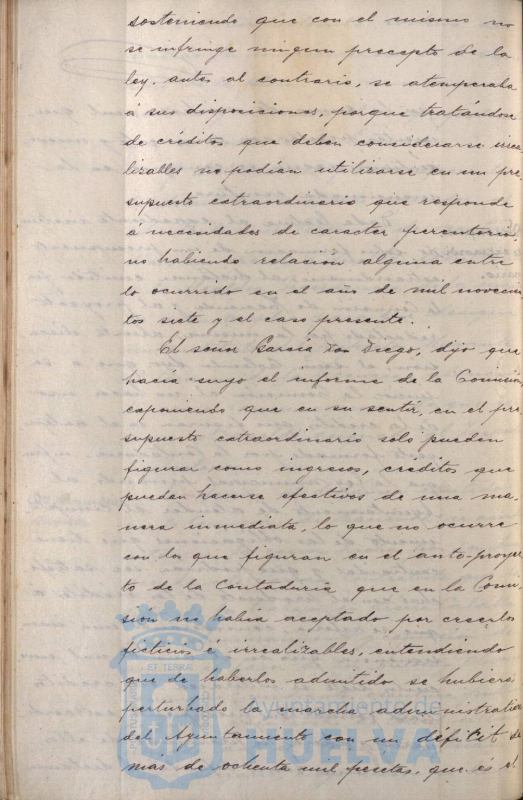 sosteniendo que con el mismo no
se infringe ningun precepto de la
ley, antes al contrario, se atemperaba
á sus disposiciones, porque tratándose
de créditos que deben considerarse irrea-
lizables no podian utilizarse en un pre-
supuesto extraordinario que responde
á necesidades de caracter perentorio,
no habiendo relación alguna entre
lo ocurrido en el año de mil novecien-
tos siete y el caso presente.
El señor García Don Diego, dijo que
hacía suyo el informe de la Comisión,
exponiendo que en su sentir, en el pre-
supuesto extraordinario solo pueden
figurar como ingresos, créditos que
puedan hacerse efectivos de una ma-
nera inmediata, lo que no ocurre
con los que figuran en el ante-proyec-
to de la Contaduría que en la Comi-
sión no había aceptado por creerlos
ficticios é irrealizables, entendiendo
que de haberlos admitido se hubiera
perturbado la marcha administrativa
del Ayuntamiento con un déficit de
más de ochenta mil pesetas, que es el
Ayuntamiento de
HUELVA